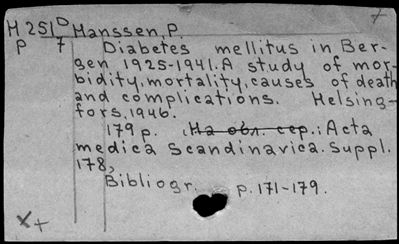 M 251 D Hanssen, P.
P 7 Diabetes mellitus in Ber-
gen 1925-1941. A study of mor-
bidity, mortality, causes of death
and complications. Helsing-
fors, 1946.
179 p. (На обл. сер.: Acta
medica Scandinavica. Suppl.
178)
Bibliogr. p. 171-179.